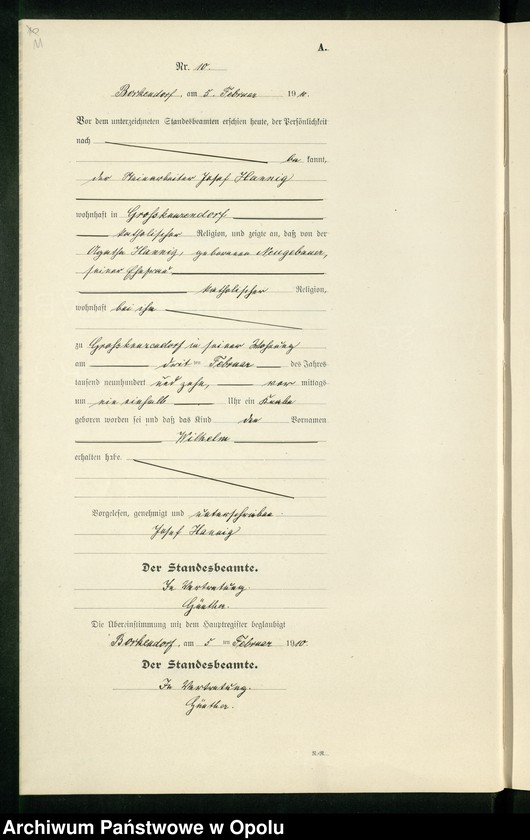 A.
Nr. 10.
Borkendorf, am 5. Februar 1910.
Vor dem unterzeichneten Standesbeamten erschien heute, der Persönlichkeit
nach be kannt,
der Steinarbeiter Josef Hannig
wohnhaft in Großkunzendorf
katholischer Religion, und zeigte an, daß von der
Agatha Hannig, geborenen Neugebauer,
seiner Ehefrau
katholischer Religion,
wohnhaft bei ihm
zu Großkunzendorf in seiner Wohnung
am dritten Februar des Jahres
tausend neunhundert und zehn, vor mittags
um ein einhalb Uhr ein Knabe
geboren worden sei und daß das Kind den Vornamen
Wilhelm
erhalten habe.
Vorgelesen, genehmigt und unterschrieben
Josef Hannig
Der Standesbeamte.
In Vertretung.
Die Übereinstimmung mit dem Hauptregister beglaubigt
Borkendorf, am 5 ten Februar 1910.
Der Standesbeamte.
In Vertretung.
Archiwum Państwowe w Opolu